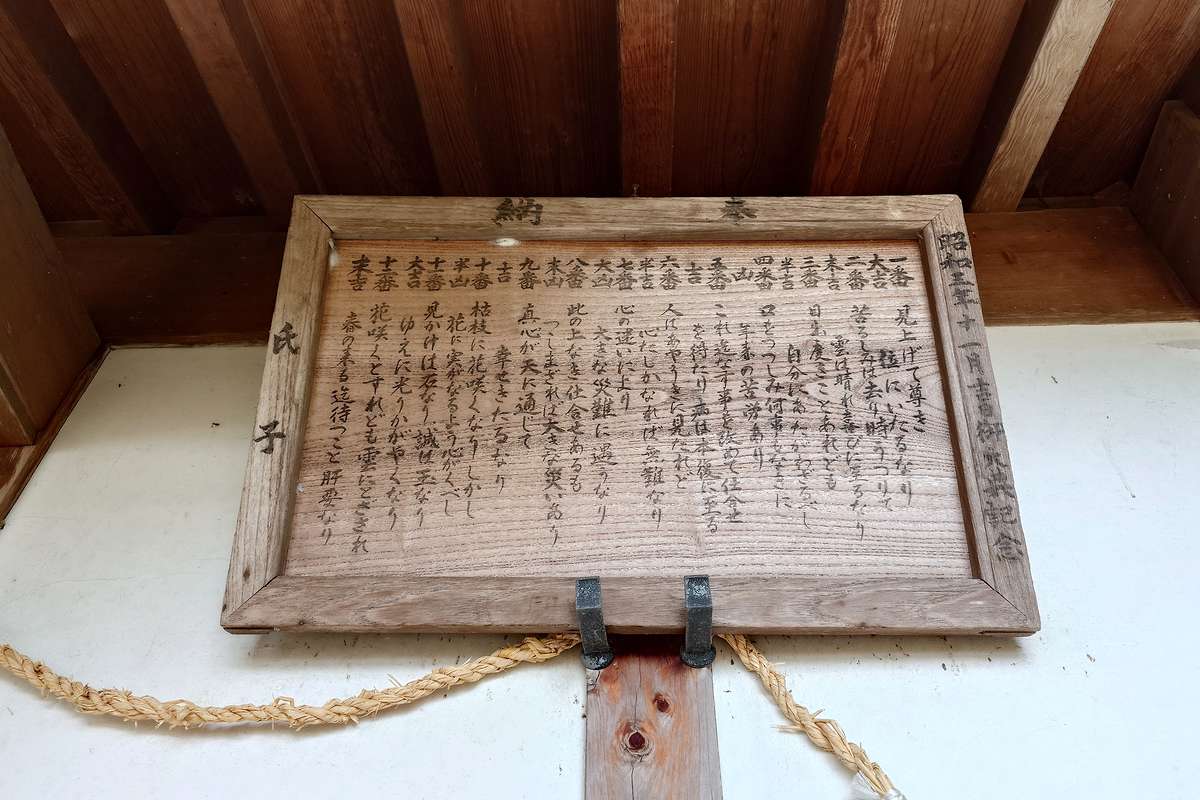 奉納
昭和三年十一月 日御大典記念
一番 見上げて尊き
大吉 位にいたるなり
二番 苦るしみは去り時うつりて
末吉 雲は晴れ喜びに至るなり
三番 目出度きことあれども
半吉 自分にあたわざるべし
四番 口をつつしみ何事もなきに
凶 年来の苦労あり
五番 これ迄なす事を改めて仕合せ
吉 を得たり病は本復に至る
六番 人はあやうきに見たれど
半吉 心たしかなれば無難なり
七番 心の迷いにより
大凶 大きな災難に遇うなり
八番 此の上なき仕合せあるも
末凶 つつしまざれば大きな災いあり
九番 真心が天に通じて
吉 幸せきたるなり
十番 枯枝に花咲くなりしかし
半凶 花に実がなるよう心がくべし
十一番 見かけは石なり誠は玉なり
大吉 ゆえに光りかがやくなり
十二番 花咲くとすれども雲にとざされ
末吉 春の来る迄待つこと肝要なり
氏子